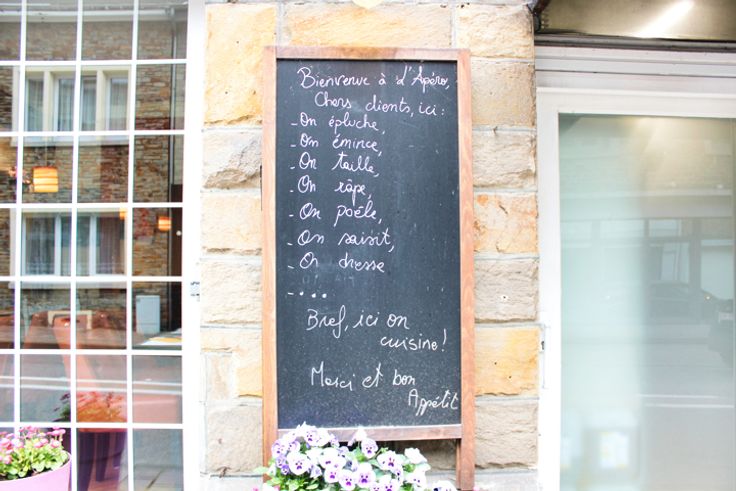 Bienvenue à d'Apéro,
Chers clients, ici :
- On épluche,
- On émince,
- On taille,
- On râpe,
- On poêle,
- On saisit,
- On dresse
- ....
Bref, ici on
cuisine !
Merci et bon
Appétit